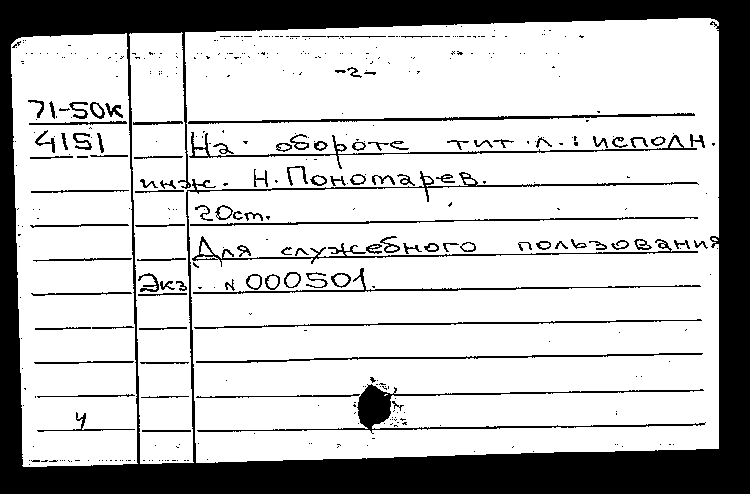 -2-
71-50к
4151 На обороте тит.л.: исполн.
инж. Н.Пономарев.
20ст.
Для служебного пользования
Экз. N 000501.
ч